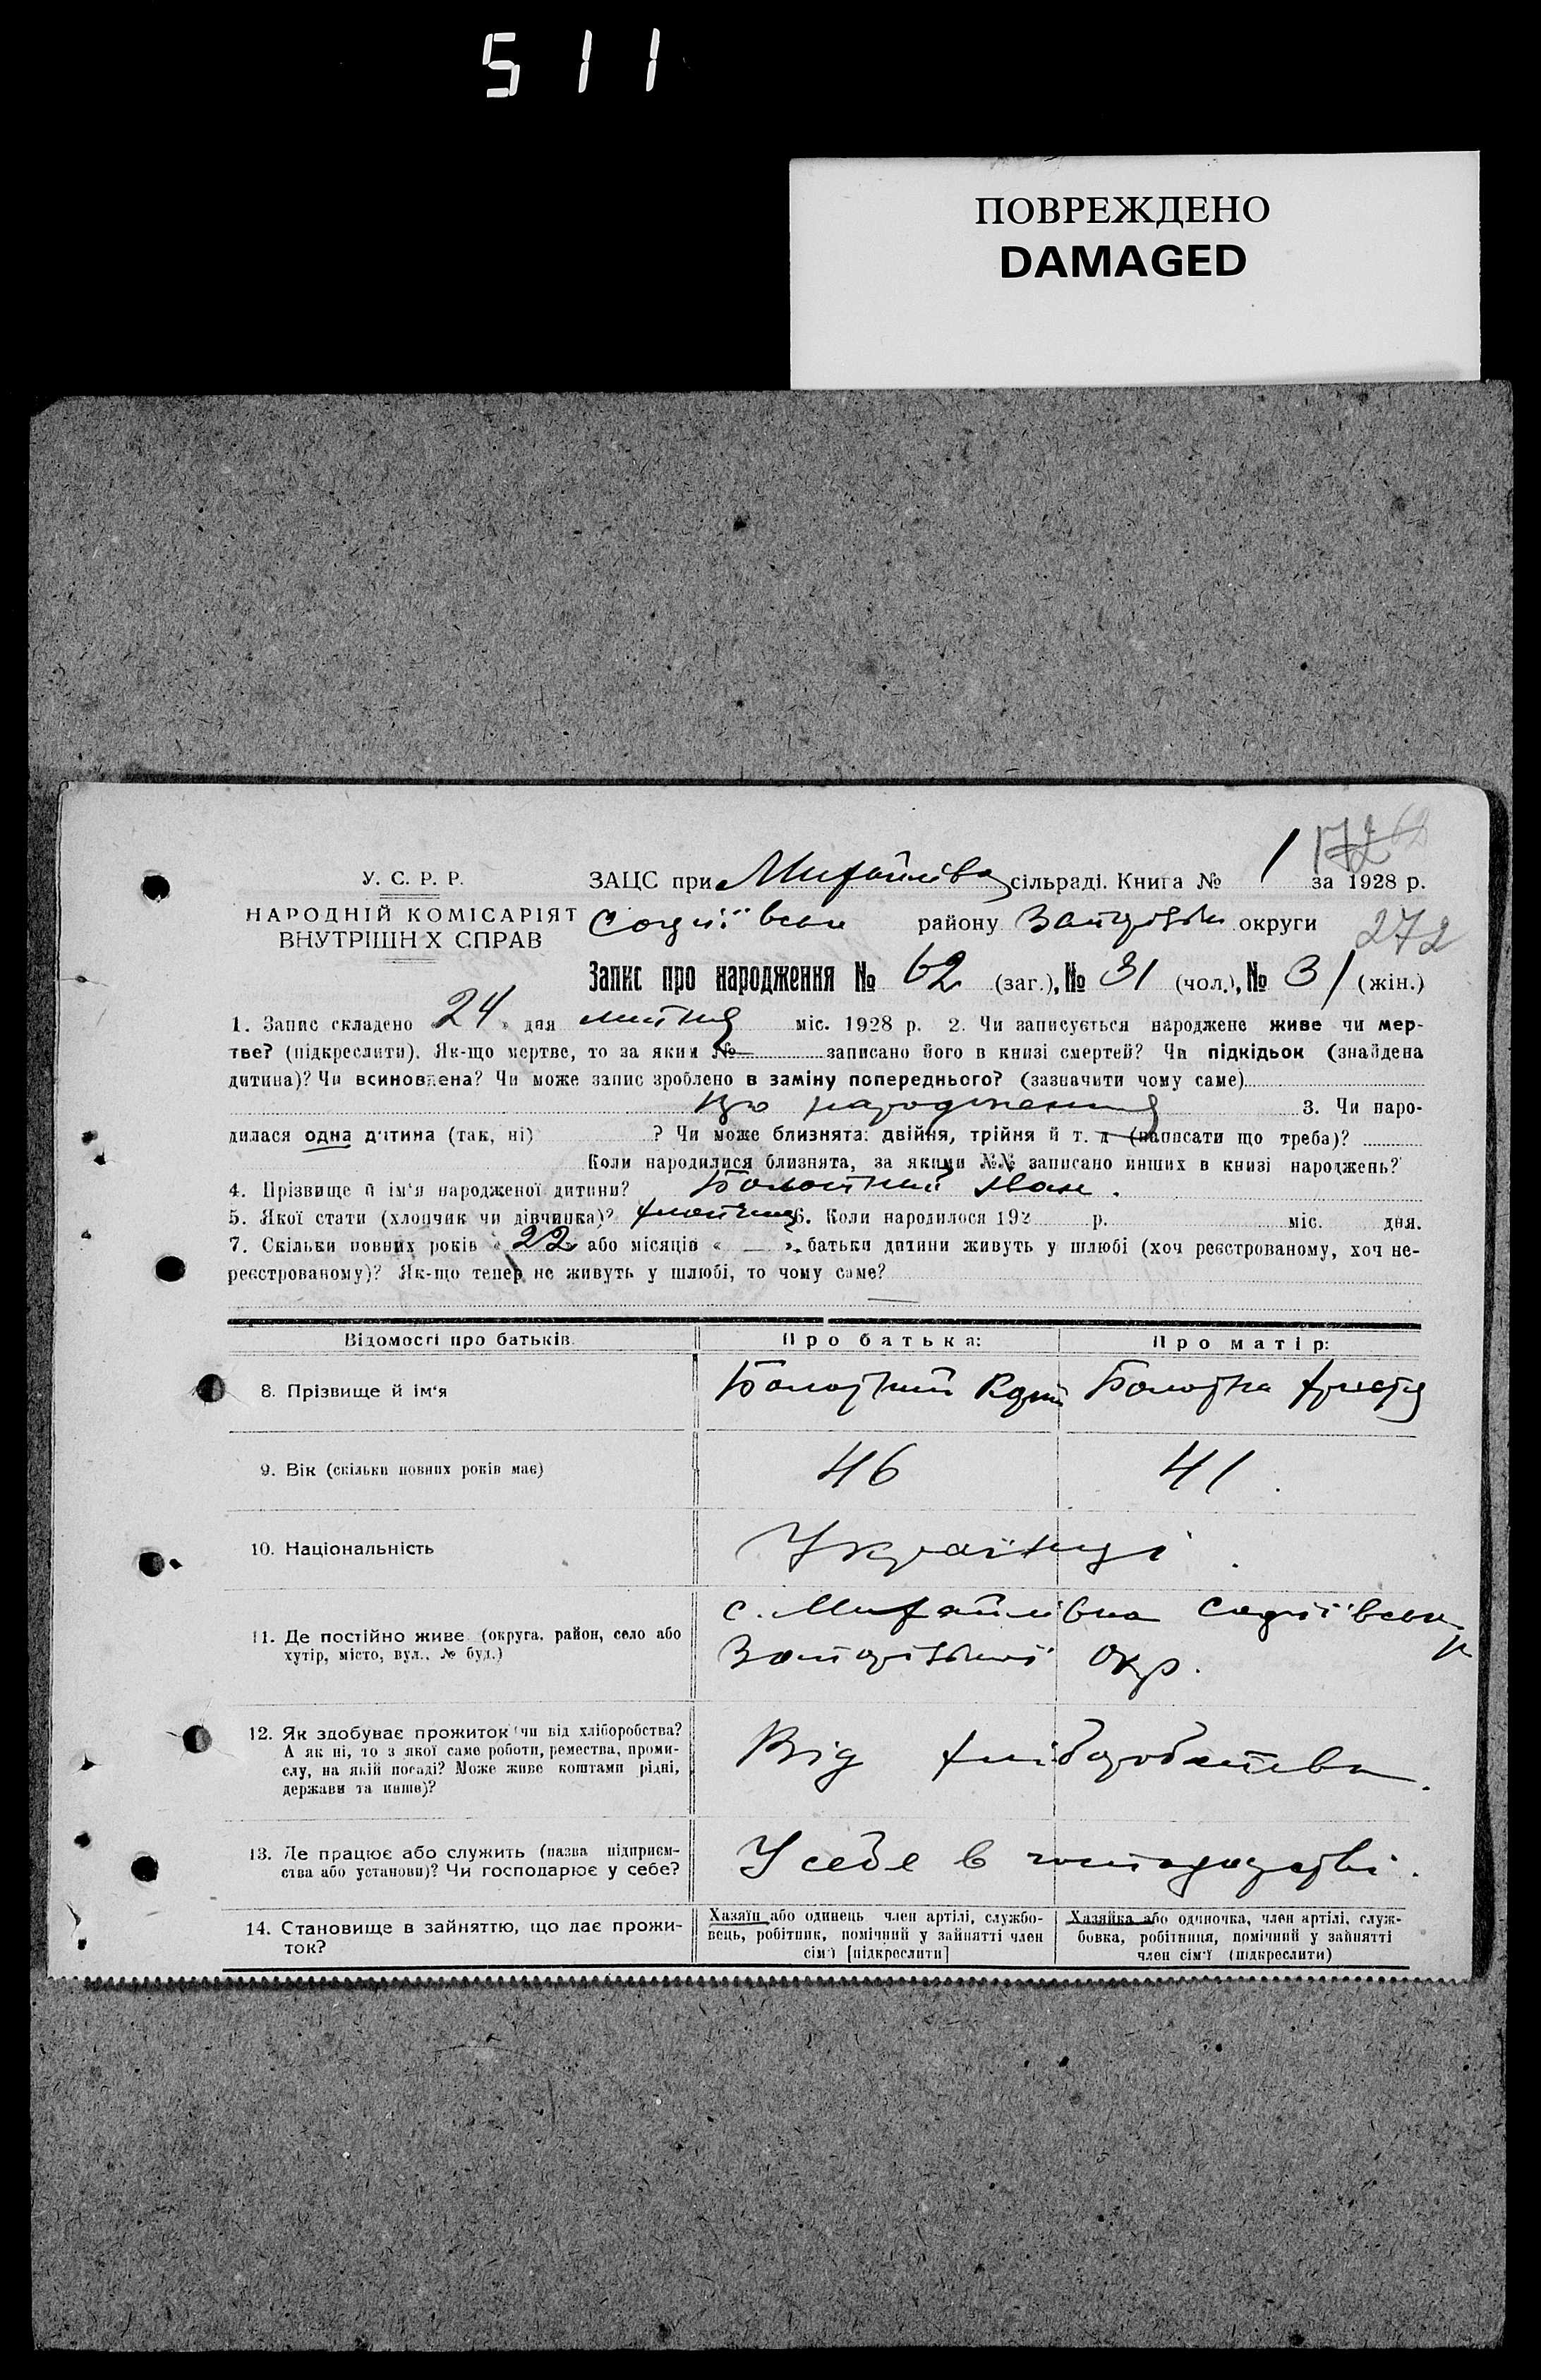 511
ПОВРЕЖДЕНО
DAMAGED
172 62
У. С. Р. Р.
НАРОДНІЙ КОМІСАРІЯТ
ВНУТРІШНІХ СПРАВ
ЗАЦС при Михайлівка сільраді. Книга № 1 за 1928 р.
Софіївськ району Запорізьк округи 272
Запис про народження № 62 (заг.), № 31 (чол.), № 31 (жін.)
1. Запис складено 24 дня липня міс. 1928 р. 2. Чи записується народжене живе чи мер-
тве? (підкреслити). Як-що мертве, то за яким № записано його в книзі смертей? Чи підкідьок (знайдена
дитина)? Чи всиновлена? Чи може запис зроблено в заміну попереднього? (зазначити чому саме)
Про народження 3. Чи наро-
дилася одна дитина (так, ні) ? Чи може близнята: двійня, трійня й т. д (написати що треба)?
Коли народилися близнята, за якими №№ записано инших в книзі народжень?
4. Прізвище й ім'я народженої дитини? Болотний Іван.
5. Якої статі (хлопчик чи дівчинка)? хлопчик 6. Коли народилося 192 р. міс. дня.
7. Скільки повних років « 22 » або місяців « — » батьки дитини живуть у шлюбі (хоч реєстрованому, хоч не-
реєстрованому)? Як-що тепер не живуть у шлюбі, то чому саме?
Відомості про батьків. Про батька: Про матір:
8. Прізвище й ім'я Болотний Болотна
9. Вік (скільки повних років має) 46 41.
10. Національність Українці.
11. Де постійно живе (округа, район, село або
хутір, місто, вул., № буд.)
с. Михайлівка Софіївськ р
Запорізької Окр.
12. Як здобуває прожиток чи від хліборобства?
А як ні, то з якої саме роботи, ремества, проми-
слу, на якій посаді? Може живе коштами рідні,
держави та инше)?
Від хліборобства.
13. Де працює або служить (назва підприєм-
ства або установи)? Чи господарює у себе?
У себе в господарстві.
14. Становище в зайняттю, що дає прожи-
ток?
Хазяїн або одинець член артілі, службо-
вець, робітник, помічний у зайнятті член
сім'ї [підкреслити]
Хазяйка або одиночка, член артілі, служ-
бовка, робітниця, помічний у зайнятті
член сім'ї (підкреслити)